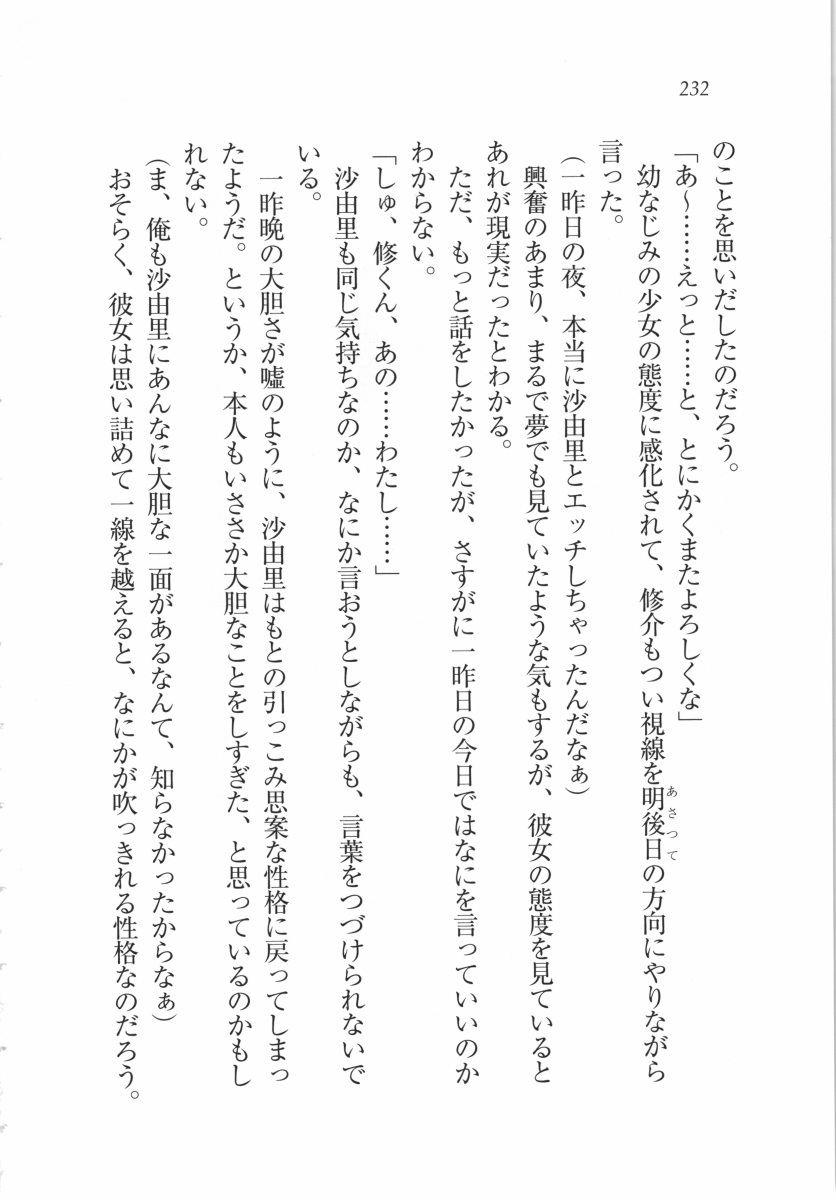 232
のことを思いだしたのだろう。
「あ～……えっと……と、とにかくまたよろしくな」
幼なじみの少女の態度に感化されて、修介もつい視線を明後日の方向にやりながら
あさって
言った。
（一昨日の夜、本当に沙由里とエッチしちゃったんだなぁ）
興奮のあまり、まるで夢でも見ていたような気もするが、彼女の態度を見ていると
あれが現実だったとわかる。
ただ、もっと話をしたかったが、さすがに一昨日の今日ではなにを言っていいのか
わからない。
「しゅ、修くん、あの……わたし……」
沙由里も同じ気持ちなのか、なにか言おうとしながらも、言葉をつづけられないで
いる。
一昨晩の大胆さが嘘のように、沙由里はもとの引っこみ思案な性格に戻ってしまっ
たようだ。というか、本人もいささか大胆なことをしすぎた、と思っているのかもし
れない。
（ま、俺も沙由里にあんなに大胆な一面があるなんて、知らなかったからなぁ）
おそらく、彼女は思い詰めて一線を越えると、なにかが吹っきれる性格なのだろう。